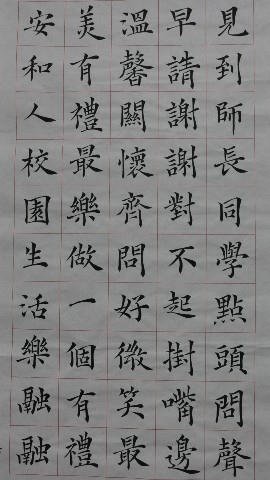 見到師長同學點頭問聲
早請謝謝對不起掛嘴邊
溫馨關懷齊問好微笑最
美有禮最樂做一個有禮
安和人校園生活樂融融